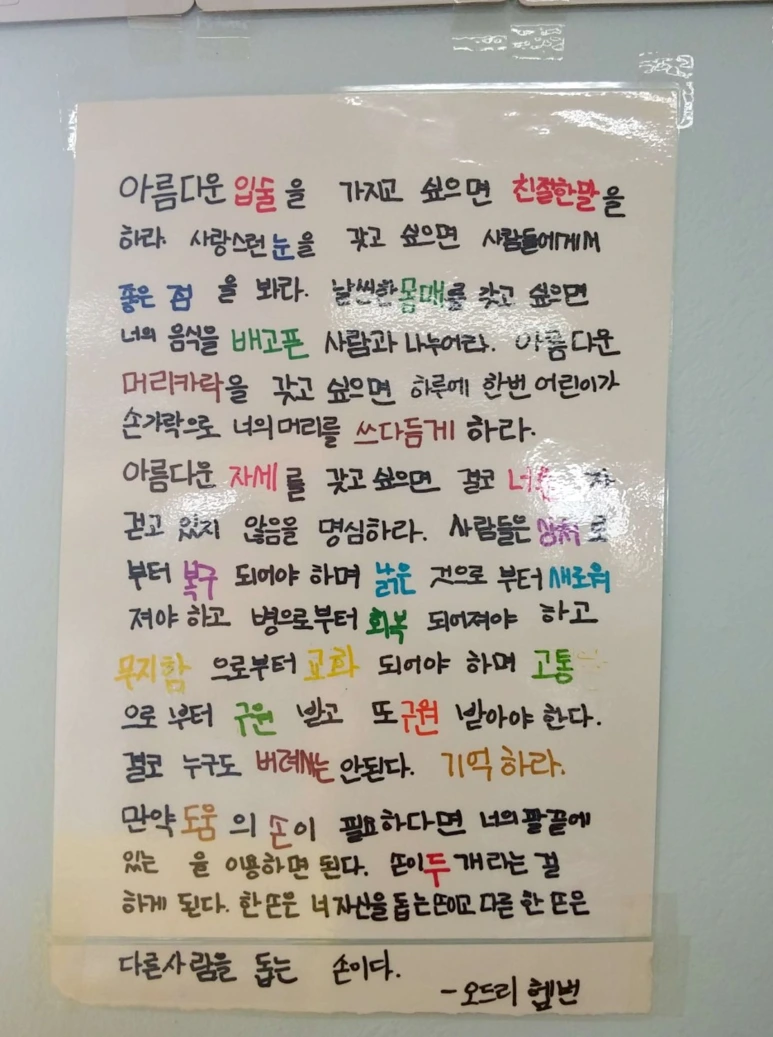 아름다운 입술을 가지고 싶으면 친절한말을
하라. 사랑스런 눈을 갖고 싶으면 사람들에게서
좋은 점 을 봐라. 날씬한 몸매를 갖고 싶으면
너의 음식을 배고픈 사람과 나누어라. 아름다운
머리카락을 갖고 싶으면 하루에 한번 어린이가
손가락으로 너의머리를 쓰다듬게 하라.
아름다운 자세를 갖고싶으면 결코
걷고 있지 않음을 명심하라. 사람들은 상처로
부터 복구 되어야 하며 낡은 것으로 부터 새로워
져야 하고 병으로부터 회복 되어져야 하고
무지함 으로부터 교화 되어야 하며 고통
으로 부터 구원 받고 또 구원 받아야 한다.
결코 누구도 버려서는 안된다. 기억하라.
만약 도움 의 손이 필요하다면 너의 팔끝에
있는 을 이용하면 된다. 손이 두 개라는 걸
하게 된다. 한 뜨은 너 자신을 돕는 뜨이고 다른 한 뜨은
다른사람을 돕는 손이다.
-오드리 헵번